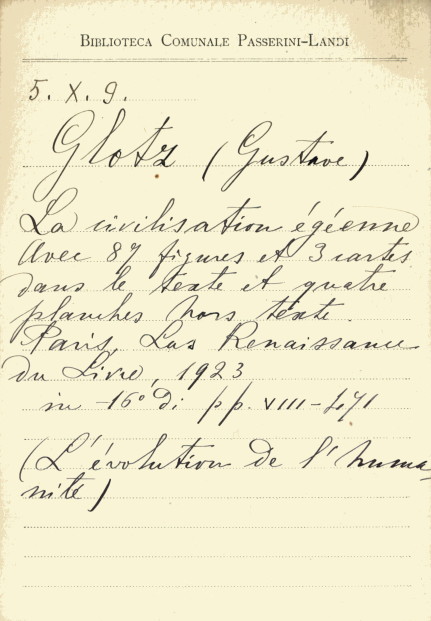 BIBLIOTECA COMUNALE PASSERINI-LANDI
5. X. 9.
Glotz (Gustave)
La civilisation égéenne
Avec 87 figures et 3 cartes
dans le texte et quatre
planches hors texte.
Paris, Las Renaissance
du Livre, 1923
in -16° di pp. VIII-471
(L'évolution de l'huma-
nité)